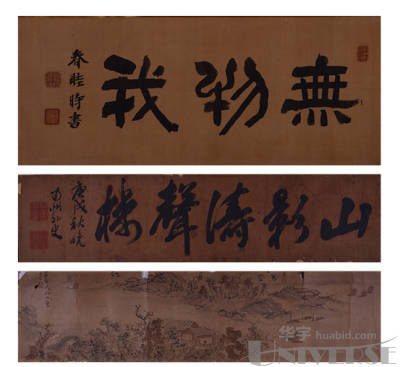 無物我
山影濤聲樓
庚戌秋晚
南州外史
华宇 huabid.com
UNIVERSE